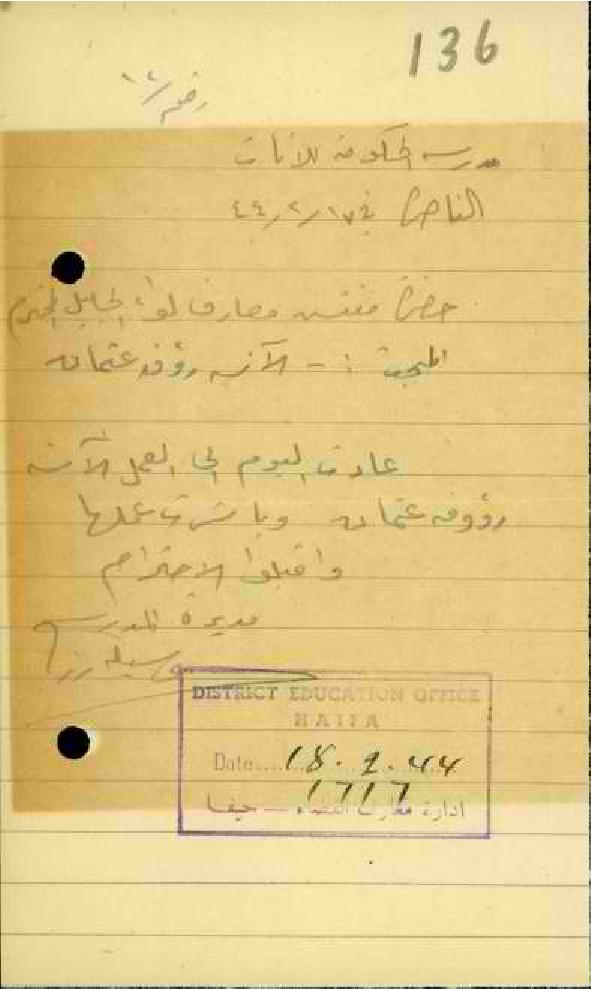 136
رقم / ١٤
مدرسة الحكومة للاناث
الناصرة في ١٧ / ٢ / ٤٤
حضرة مفتش معارف لواء الجليل المحترم
المبحث :- الآنسة رؤوفه عثمان
عادت اليوم الى العمل الآنسة
رؤوفه عثمان وباشرت عملها
واقبلوا الاحترام
مديرة المدرسة
DISTRICT EDUCATION OFFICE
HAIFA
Date.... 18. 2. 44
1717
ادارة معارف القضاء — حيفا